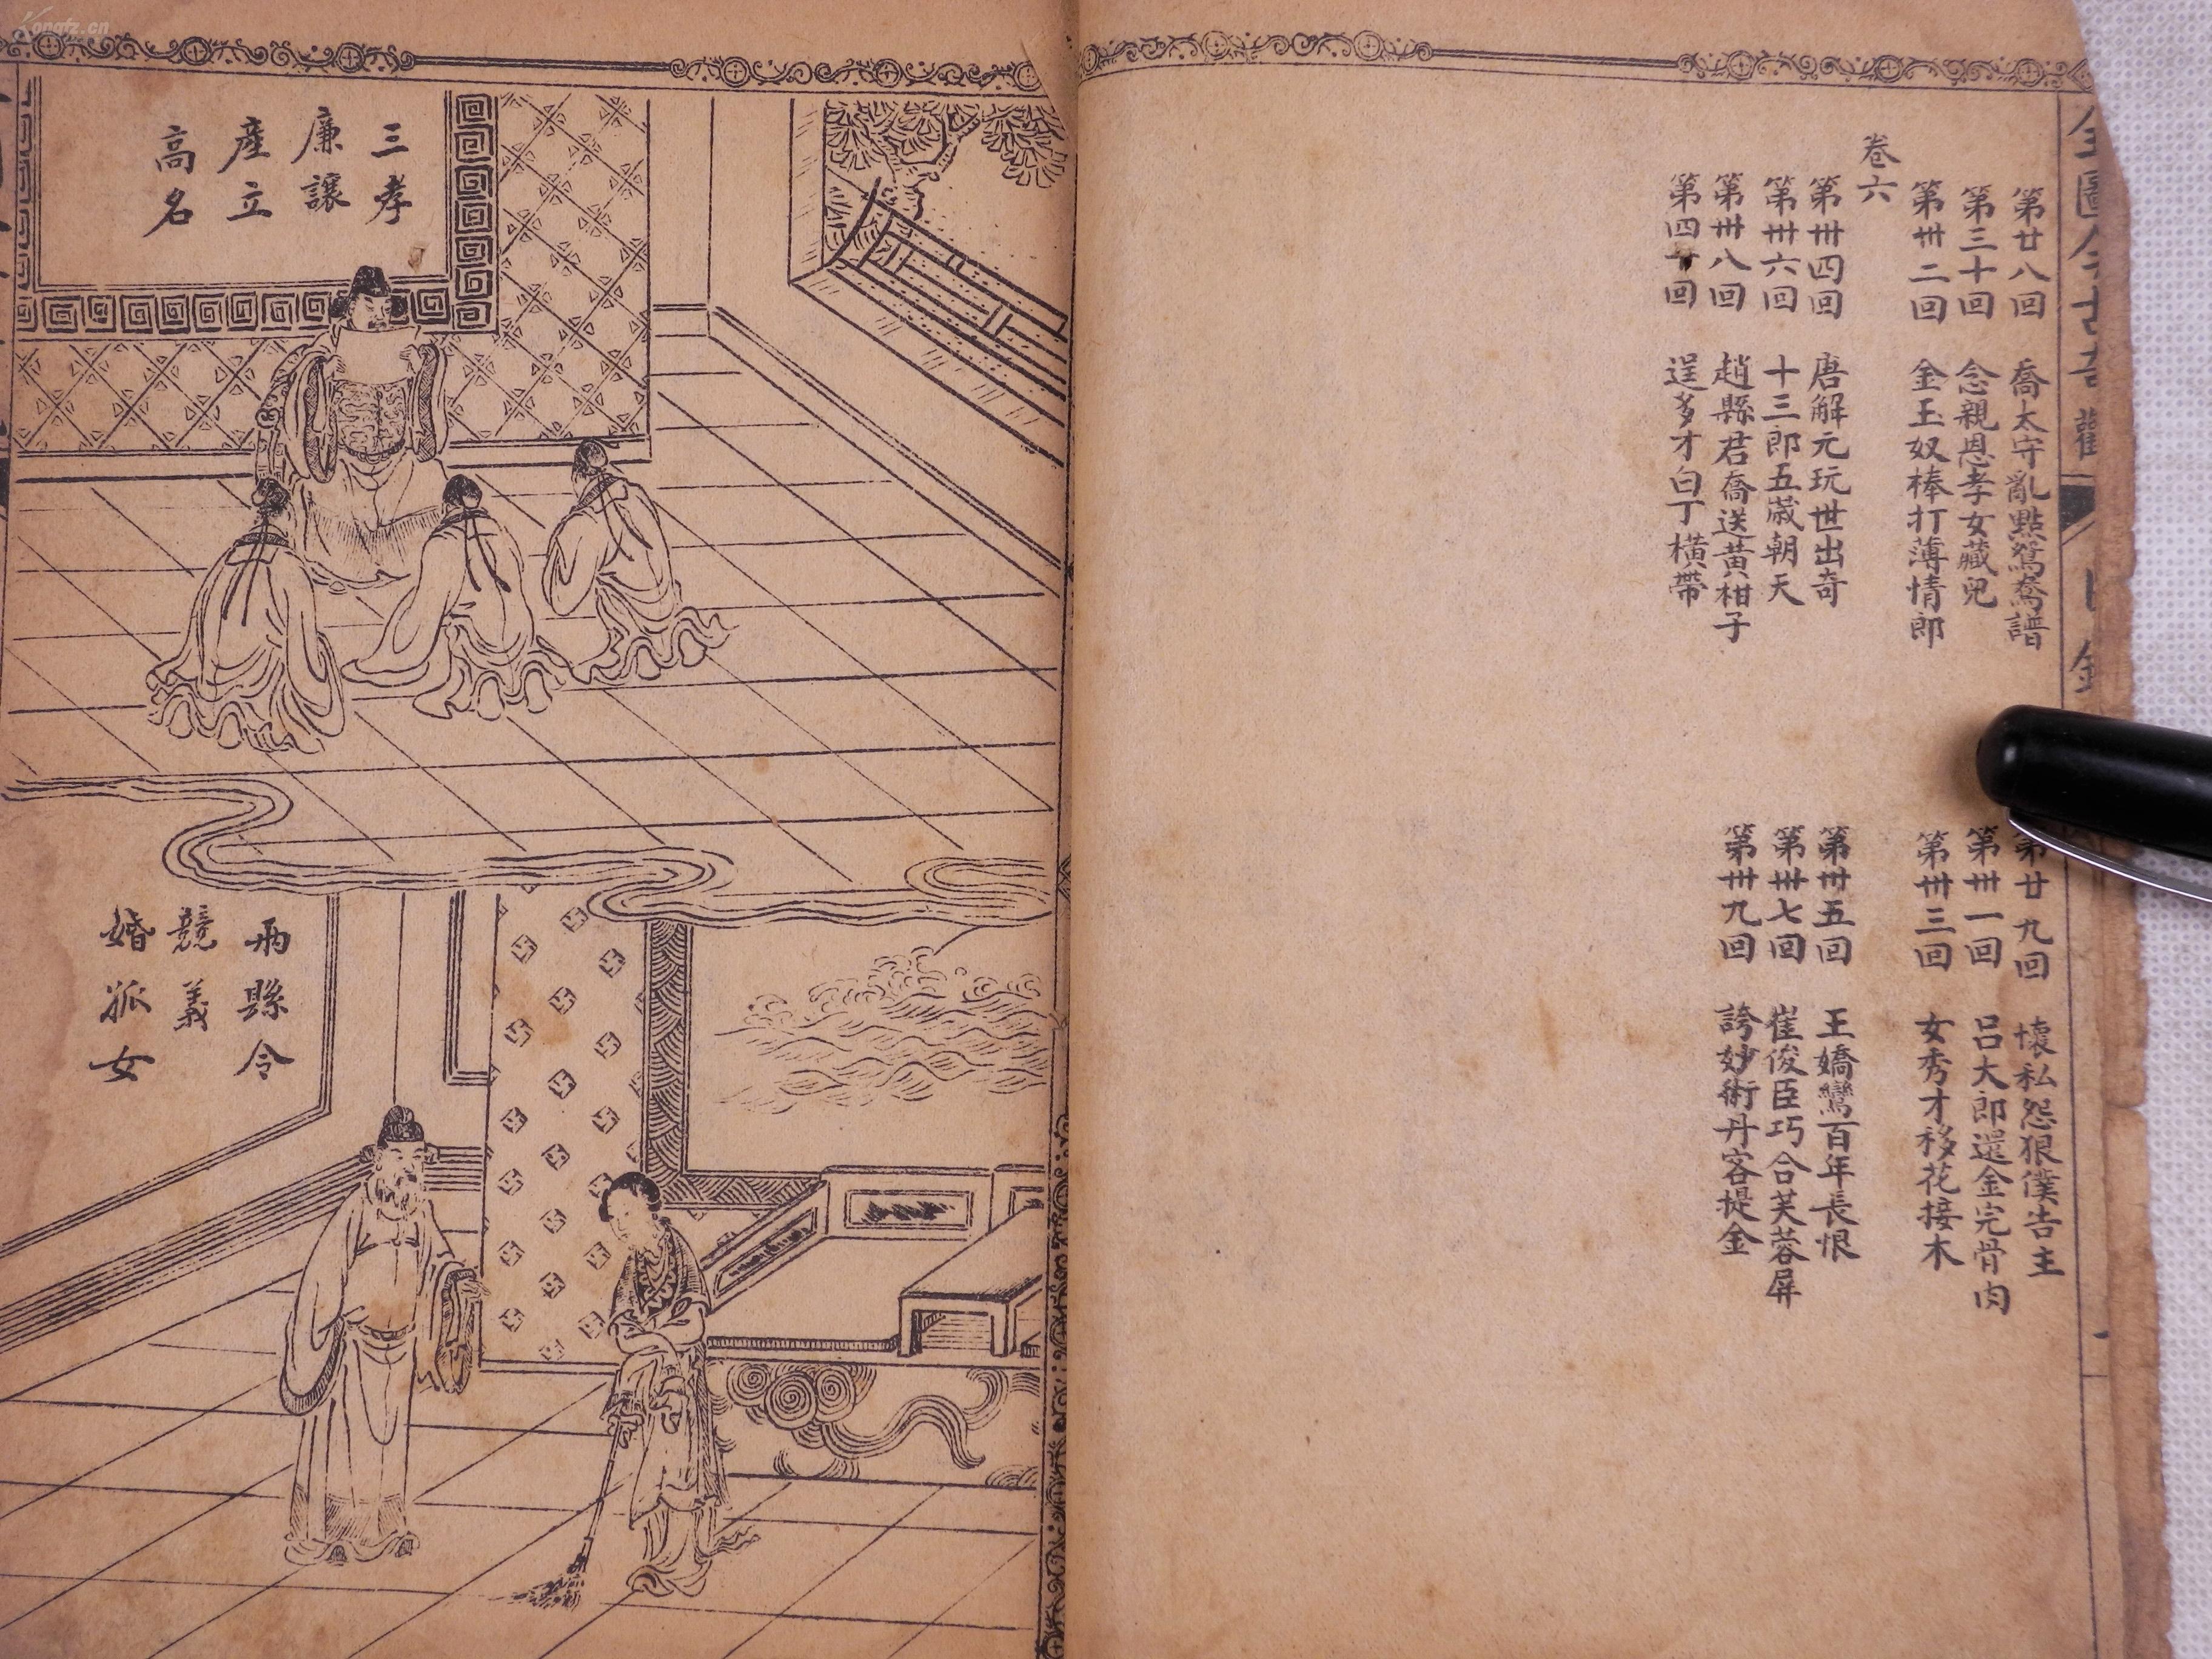 全圖今古奇觀 目錄
第廿八回 喬太守亂點鴛鴦譜 第廿九回 懷私怨狠僕告主
第三十回 念親恩孝女藏兒 第卅一回 呂大郎還金完骨肉
第卅二回 金玉奴棒打薄情郎 第卅三回 女秀才移花接木
卷六
第卅四回 唐解元玩世出奇 第卅五回 王嬌鸞百年長恨
第卅六回 十三郎五歲朝天 第卅七回 崔俊臣巧合芙蓉屏
第卅八回 趙縣君喬送黃柑子 第卅九回 誇妙術丹客提金
第四十回 逞多才白丁橫帶
三孝
廉讓
產立
高名
兩縣令
競義
婚孤女
Kongfz.cn